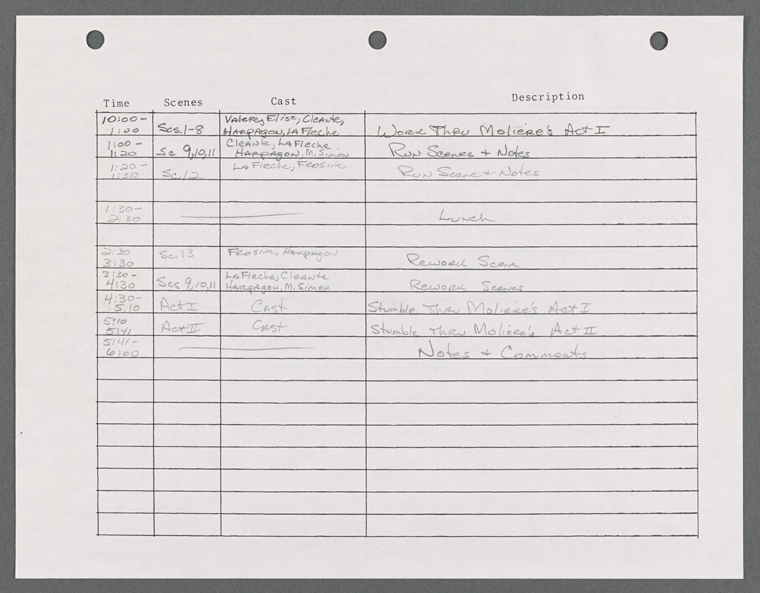 Time Scenes Cast Description
10:00-
1:00 Scs. 1-8 Valere, Elise, Cleante,
Harpagon, La Fleche Work Thru Moliere's Act I
1:00-
1:20 Sc 9,10,11 Cleante, La Fleche
Harpagon, M. Simon Run Scenes + Notes
1:20-
1:30 Sc 12 La Fleche, Frosine Run Scene + Notes
1:30-
2:30 Lunch
2:30
3:30 Sc. 13 Frosine, Harpagon Rework Scene
3:30-
4:30 Scs 9,10,11 La Fleche, Cleante
Harpagon, M. Simon Rework Scenes
4:30-
5:10 Act I Cast Stumble Thru Moliere's Act I
5:10
5:41 Act II Cast Stumble Thru Moliere's Act II
5:41-
6:00 Notes + Comments